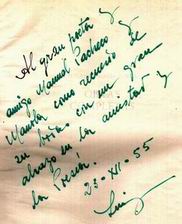 Al gran poeta y
amigo Manuel Pacheco
Manolo, como recuerdo de
su con un gran
abrazo en la amistad y
la Poesía.
23-XI-55
Luis